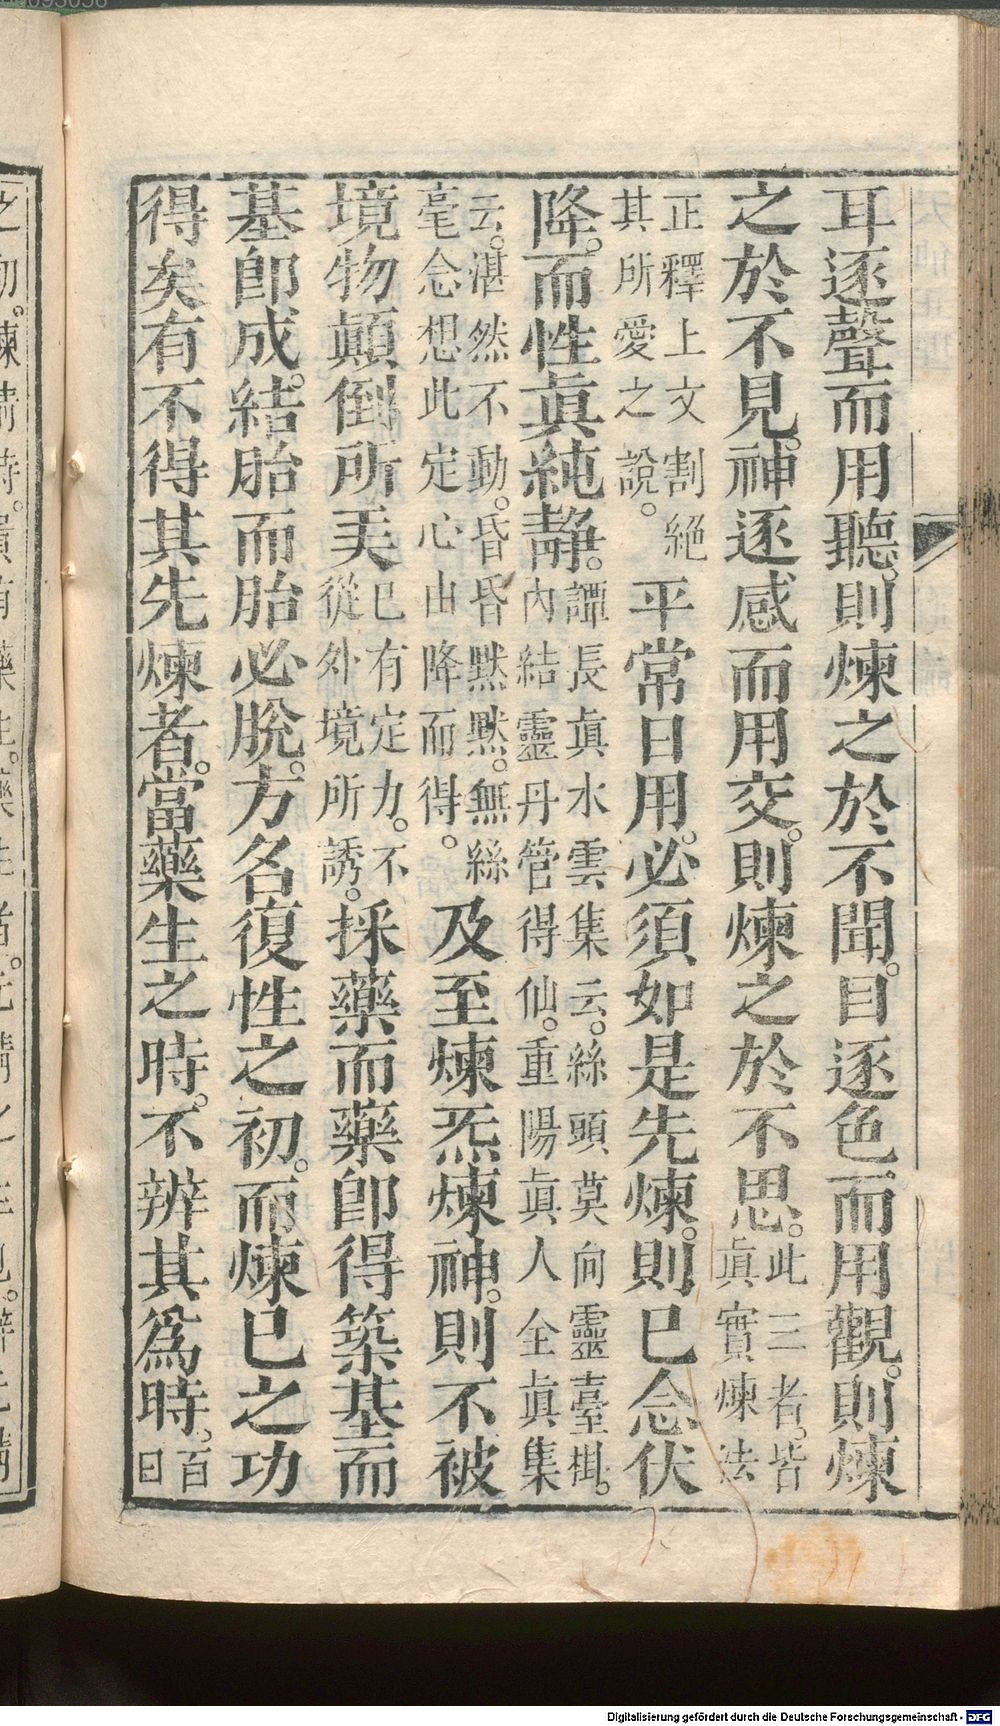 耳逐聲而用聽。則煉之於不聞。目逐色而用觀。則煉
之於不見。神逐感而用交。則煉之於不思。此三者。皆眞實煉法
正釋上文割絕其所愛之說。平常日用。必須如是先煉。則已念伏
降。而性眞純靜。譚長眞水雲集云。絲頭莫向靈臺掛。內結靈丹管得仙。重陽眞人全眞集
云。湛然不動。昏昏默默。無絲毫念想此定心由降而得。及至煉炁煉神。則不被
境物顛倒所美已有定力。不從外境所誘。採藥而藥卽得築基而
基卽成。結胎而胎必脫。方名復性之初。而煉已之功
得矣有不得其先煉者。當藥生之時。不辨其爲時。百日
之初。煉精時。
Digitalisierung gefördert durch die Deutsche Forschungsgemeinschaft - DFG